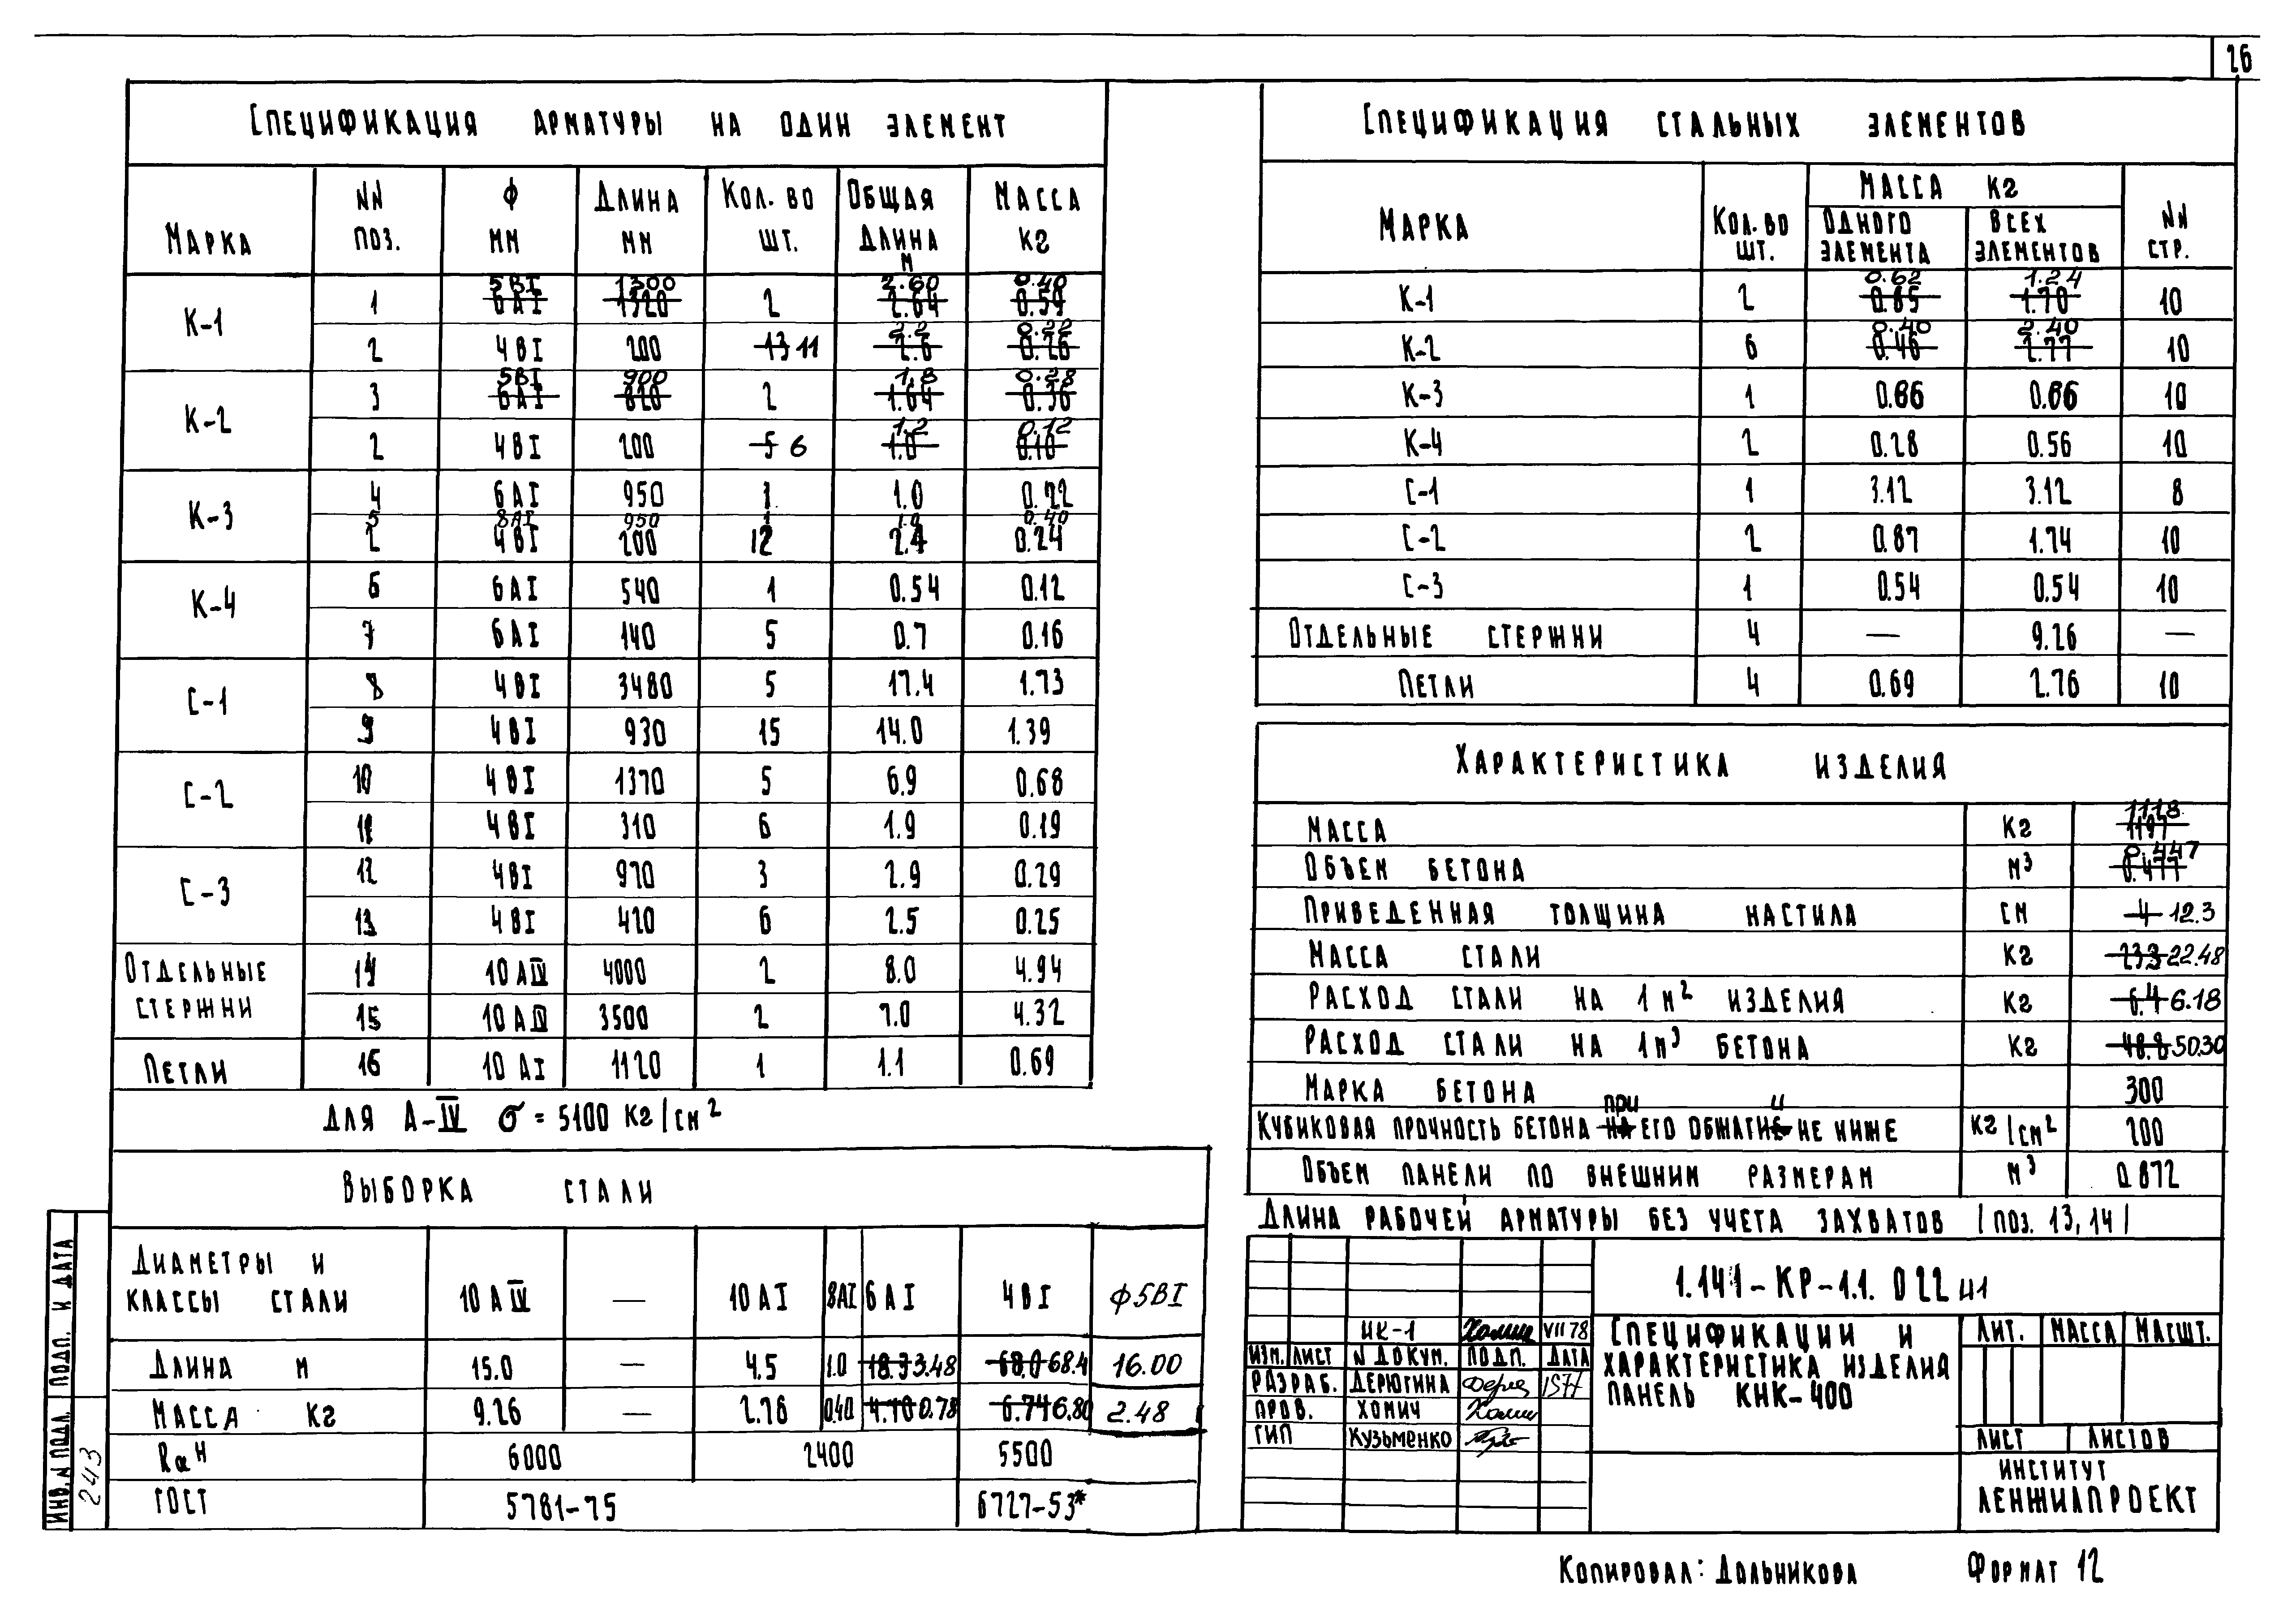 26
Спецификация арматуры на один элемент
Марка NN поз. Ф мм Длина мм Кол. во шт. Общая длина м Масса кг
К-1 1 5ВI 6АI 1300 1320 2 2.60 2.64 0.40 0.59
2 4ВI 200 13 11 2.2 2.6 0.22 0.26
К-2 3 5ВI 6АI 900 820 2 1.8 1.64 0.28 0.36
2 4ВI 200 5 6 1.2 1.0 0.12 0.10
К-3 4 6АI 950 1 1.0 0.22
5 8АI 950 1 1.0 0.40
2 4ВI 200 12 2.4 0.24
К-4 6 6АI 540 1 0.54 0.12
7 6АI 140 5 0.7 0.16
С-1 8 4ВI 3480 5 17.4 1.73
9 4ВI 930 15 14.0 1.39
С-2 10 4ВI 1370 5 6.9 0.68
11 4ВI 310 6 1.9 0.19
С-3 12 4ВI 970 3 2.9 0.29
13 4ВI 420 6 2.5 0.25
Отдельные стержни 14 10АIV 4000 2 8.0 4.94
15 10АIV 3500 2 7.0 4.32
Петли 16 10АI 1120 1 1.1 0.69
для А-IV σ = 5100 кг/см²
Выборка стали
Диаметры и классы стали 10АIV — 10АI 8АI 6АI 4ВI ф5ВI
Длина м 15.0 — 4.5 1.0 18.3 3.48 68.0 68.4 16.00
Масса кг 9.26 — 2.76 0.40 4.10 0.78 6.74 6.80 2.48
Rаᴴ 6000 2400 5500
ГОСТ 5781-75 6727-53*
Инв. N подл. Подп. и дата
243
Спецификация стальных элементов
Марка Кол. во шт. Масса кг одного элемента всех элементов NN стр.
К-1 2 0.62 0.85 1.24 1.70 10
К-2 6 0.40 0.46 2.40 2.77 10
К-3 1 0.86 0.86 10
К-4 2 0.28 0.56 10
С-1 1 3.12 3.12 8
С-2 2 0.87 1.74 10
С-3 1 0.54 0.54 10
Отдельные стержни 4 — 9.26 —
Петли 4 0.69 2.76 10
Характеристика изделия
Масса кг 1118 1197
Объем бетона м³ 0.447 0.477
Приведенная толщина настила см 4 12.3
Масса стали кг 23.3 22.48
Расход стали на 1м² изделия кг 6.4 6.18
Расход стали на 1м³ бетона кг 48.8 50.30
Марка бетона 300
Кубиковая прочность бетона на при его обжатие и не ниже кг/см² 200
Объем панели по внешним размерам м³ 0.872
Длина рабочей арматуры без учета захватов (поз. 13, 14)
1.141-КР-1.1. 022 и1
ИК-1 VII 78
Изм. Лист N докум. Подп. Дата
Разраб. Дерюгина 1977
Пров. Хомич
ГИП Кузьменко
Спецификации и
характеристика изделия
панель КНК-400
Лит. Масса Масшт.
Лист Листов
Институт
Ленжилпроект
Копировал: Дольникова Формат 12